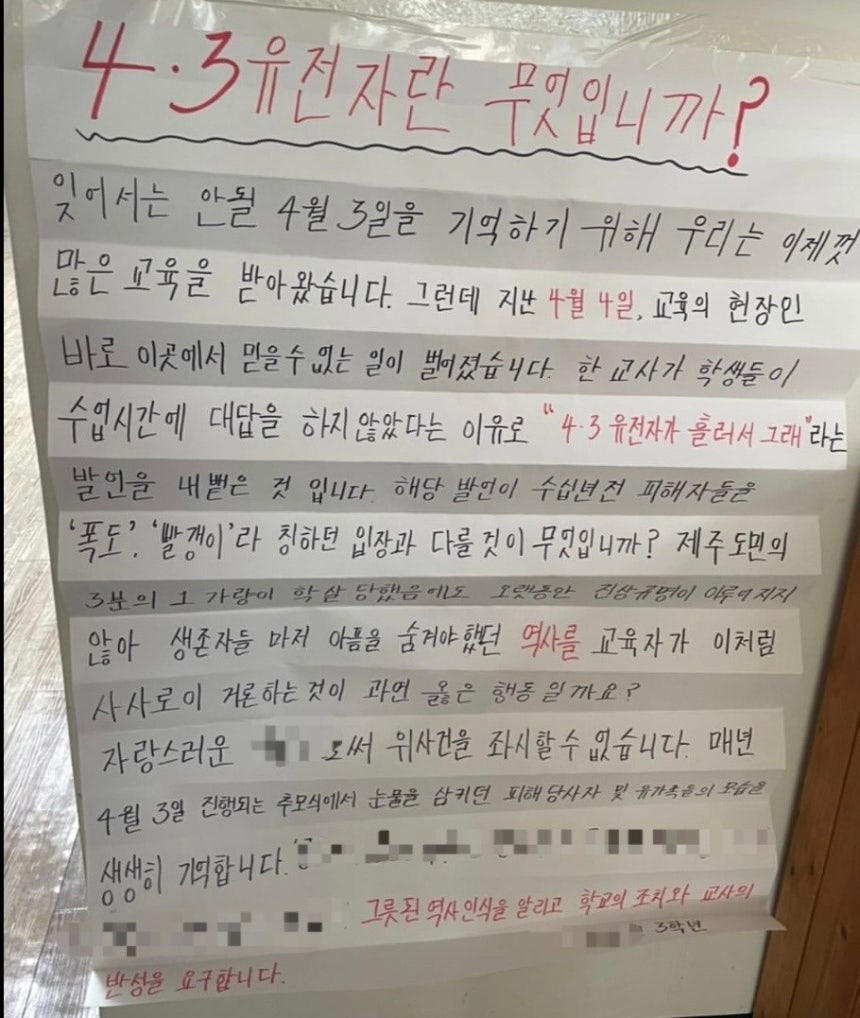 4·3유전자란 무엇입니까?
잊어서는 안될 4월 3일을 기억하기 위해 우리는 이제껏
많은 교육을 받아왔습니다. 그런데 지난 4월 4일, 교육의 현장인
바로 이곳에서 믿을수 없는 일이 벌어졌습니다. 한 교사가 학생들이
수업시간에 대답을 하지않았다는 이유로 "4·3 유전자가 흘러서 그래"라는
발언을 내뱉은 것 입니다. 해당 발언이 수십년전 피해자들을
'폭도', '빨갱이'라 칭하던 입장과 다를것이 무엇입니까? 제주도민의
3분의 1 가량이 학살 당했음에도 오랫동안 진상규명이 이루어지지
않아 생존자들 마저 아픔을 숨겨야했던 역사를 교육자가 이처럼
사사로이 거론하는것이 과연 옳은 행동일까요?
자랑스러운 로써 위사건을 좌시할 수 없습니다. 매년
4월 3일 진행되는 추모식에서 눈물을 삼키던 피해당사자 및 유가족들의 모습을
생생히 기억합니다.
그릇된 역사인식을 알리고 학교의 조치와 교사의
3학년
반성을 요구합니다.